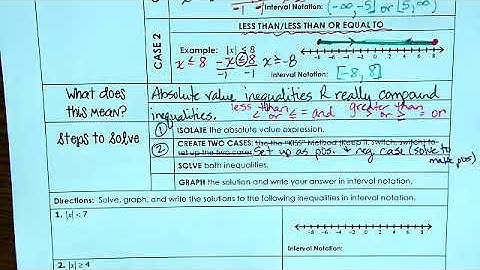 -1 -1 Interval Notation: (-∞,-5] or [5,∞)
CASE 2
LESS THAN/LESS THAN OR EQUAL TO
Example: |x| ≤ 8
x ≤ 8 -x ≤ 8 x ≥ -8
-1 -1
-8 -6 -4 -2 0 2 4 6 8
Interval Notation: [-8, 8]
What does this mean?
Absolute value inequalities R really compound
inequalities. less than < or ≤ = and greater than > or ≥ = or
Steps to Solve
① ISOLATE the absolute value expression.
② CREATE TWO CASES: Use the "KISS" Method (Keep it, switch, switch) to
set up the two cases Set up as pos. + neg. case (solve to make pos)
SOLVE both inequalities.
GRAPH the solution and write your answer in interval notation.
Directions: Solve, graph, and write the solutions to the following inequalities in interval notation.
1. |x| < 7
-8 -6 -4 -2 0 2 4 6 8
Interval Notation:
2. |x| ≥ 4